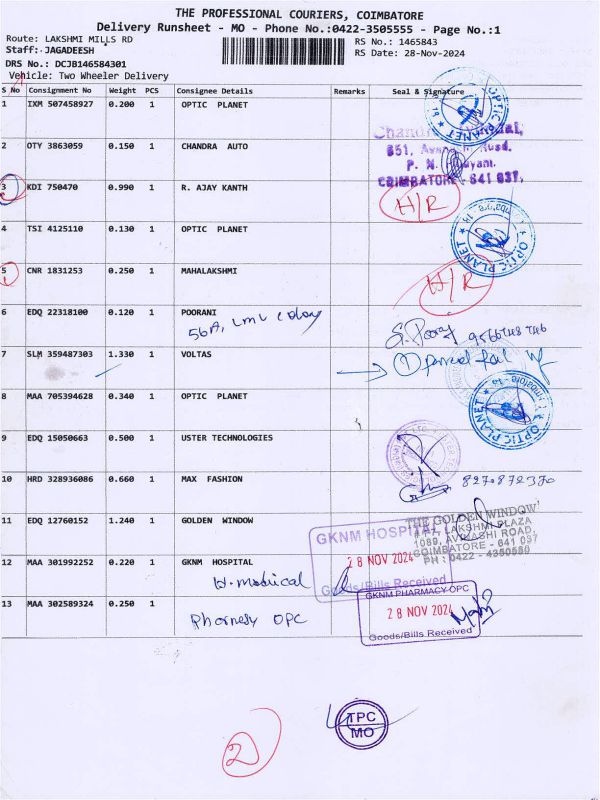 THE PROFESSIONAL COURIERS, COIMBATORE
Delivery Runsheet - MO - Phone No.:0422-3505555 - Page No.:1
Route: LAKSHMI MILLS RD
RS No.: 1465843
Staff: JAGADEESH
RS Date: 28-Nov-2024
DRS No.: DCJB146584301
Vehicle: Two Wheeler Delivery
S No Consignment No Weight PCS Consignee Details Remarks Seal & Signature
1 IXM 507458927 0.200 1 OPTIC PLANET
OPTIC PLANET
2 OTY 3863059 0.150 1 CHANDRA AUTO
COIMBATORE - 641 037.
3 KDI 750470 0.990 1 R. AJAY KANTH
H/R
4 TSI 4125110 0.130 1 OPTIC PLANET
OPTIC PLANET
5 CNR 1831253 0.250 1 MAHALAKSHMI
H/R
6 EDQ 22318100 0.120 1 POORANI
7 SLM 359487303 1.330 1 VOLTAS
8 MAA 705394628 0.340 1 OPTIC PLANET
OPTIC PLANET
9 EDQ 15050663 0.500 1 USTER TECHNOLOGIES
10 HRD 328936086 0.660 1 MAX FASHION
11 EDQ 12760152 1.240 1 GOLDEN WINDOW
THE GOLDEN WINDOW
LAKSHMI PLAZA
1089, AVINASHI ROAD,
COIMBATORE - 641 037
PH : 0422 - 4350550
12 MAA 301992252 0.220 1 GKNM HOSPITAL
GKNM HOSPITAL
28 NOV 2024
Goods/Bills Received
13 MAA 302589324 0.250 1
OPC
GKNM PHARMACY OPC
28 NOV 2024
Goods/Bills Received
TPC
MO
2